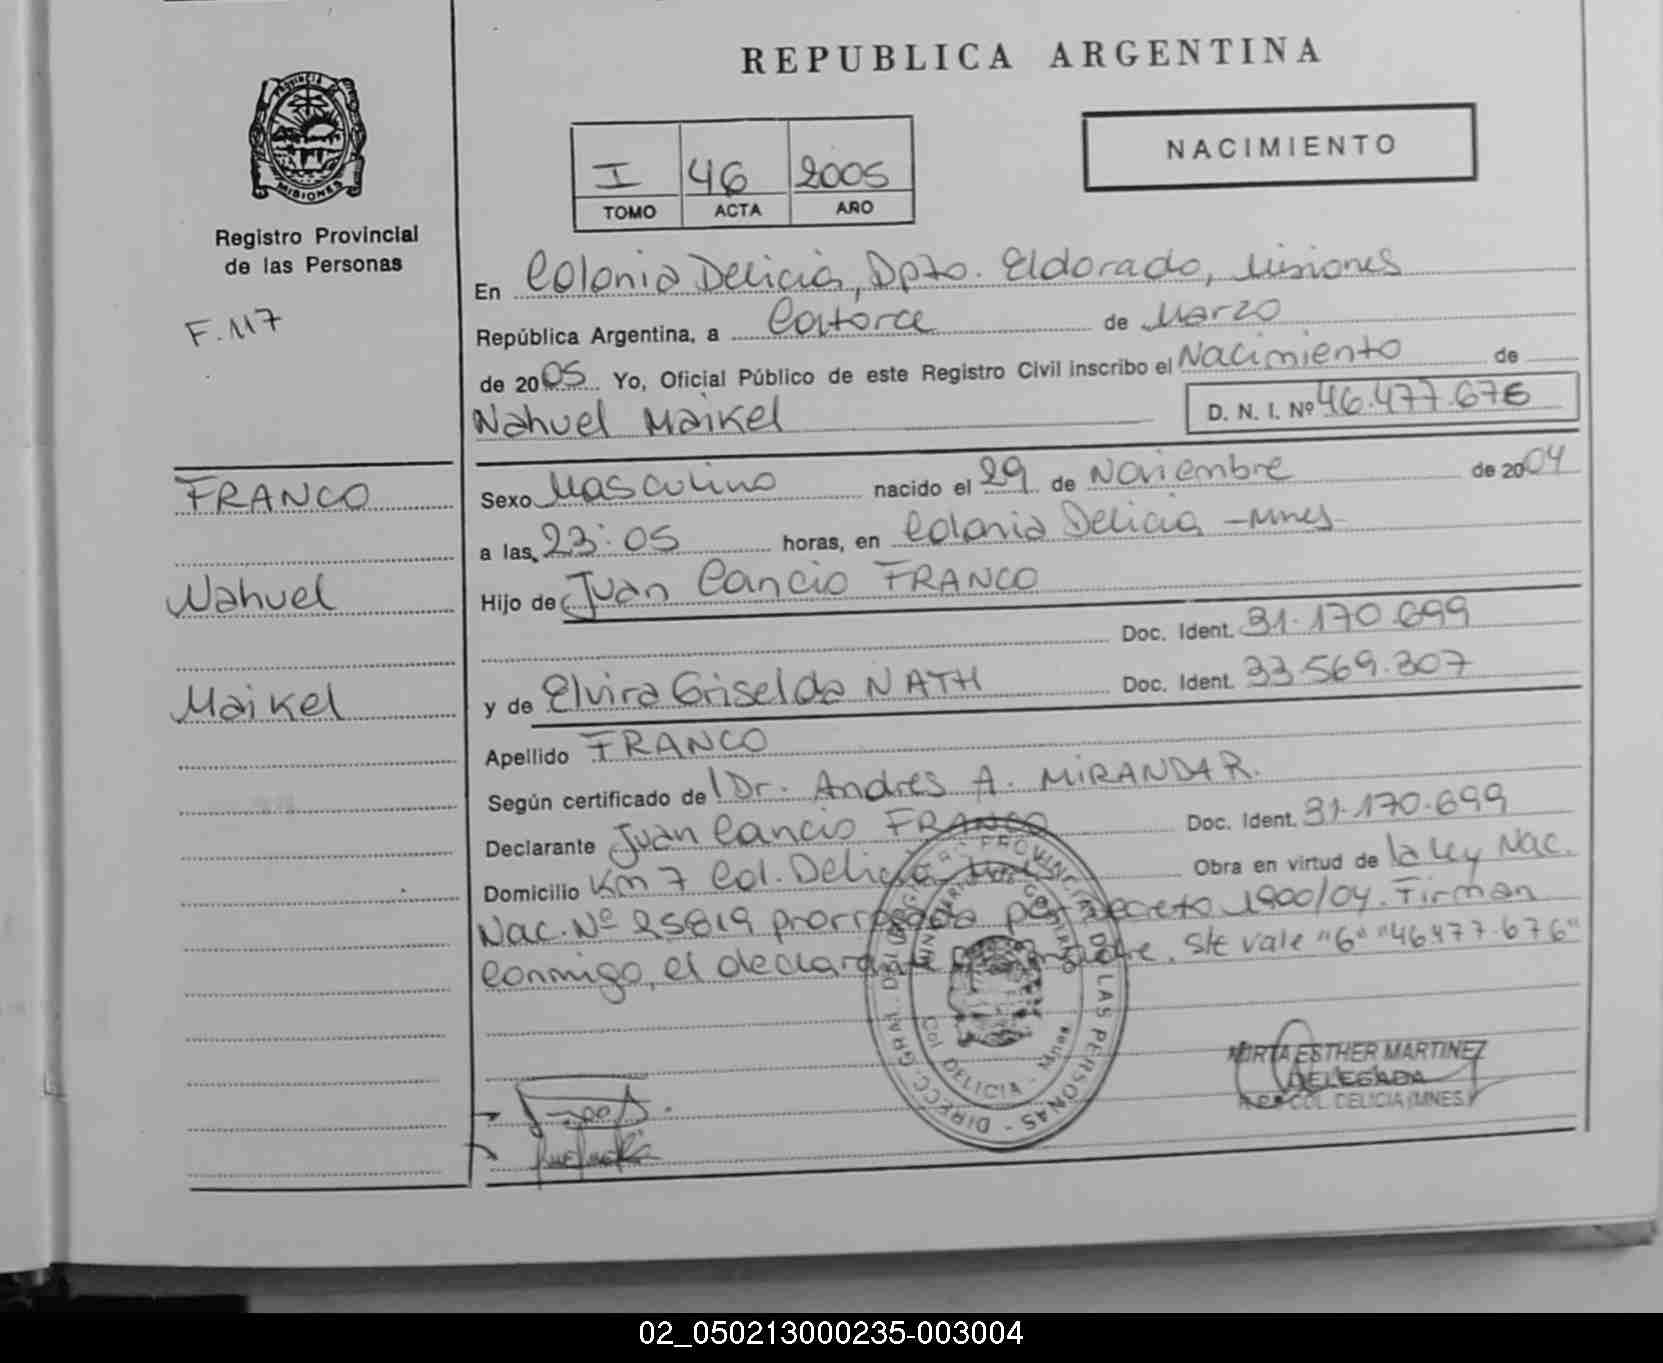 PROVINCIA DE
MISIONES
Registro Provincial
de las Personas
F. 117
FRANCO
Nahuel
Maikel
REPUBLICA ARGENTINA
I 46 2005
TOMO ACTA AÑO
NACIMIENTO
En Colonia Delicia, Dpto. Eldorado, Misiones
República Argentina, a Catorce de Marzo
de 2005 Yo, Oficial Público de este Registro Civil inscribo el Nacimiento de
Nahuel Maikel D. N. I. Nº 46.477.676
Sexo Masculino nacido el 29 de Noviembre de 2004
a las 23:05 horas, en Colonia Delicia - Mnes-
Hijo de Juan Cancio FRANCO
Doc. Ident. 31.170.699
y de Elvira Griselda NATH Doc. Ident. 33.569.307
Apellido FRANCO
Según certificado del Dr. Andres A. MIRANDA R.
Declarante Juan Cancio FRANCO Doc. Ident. 31.170.699
Domicilio Km 7 Col. Delicia Obra en virtud de la Ley Nac.
Nac. Nº 25819 prorrogada por decreto 1900/04. Firman
Conmigo, el declarante madre. S/E vale "6" "46.477.676"
COL. DELICIA
LAS PERSONAS - DIREC. GRAL.
MIRTA ESTHER MARTINEZ
DELEGADA
COL. DELICIA (MNES.)
02_050213000235-003004